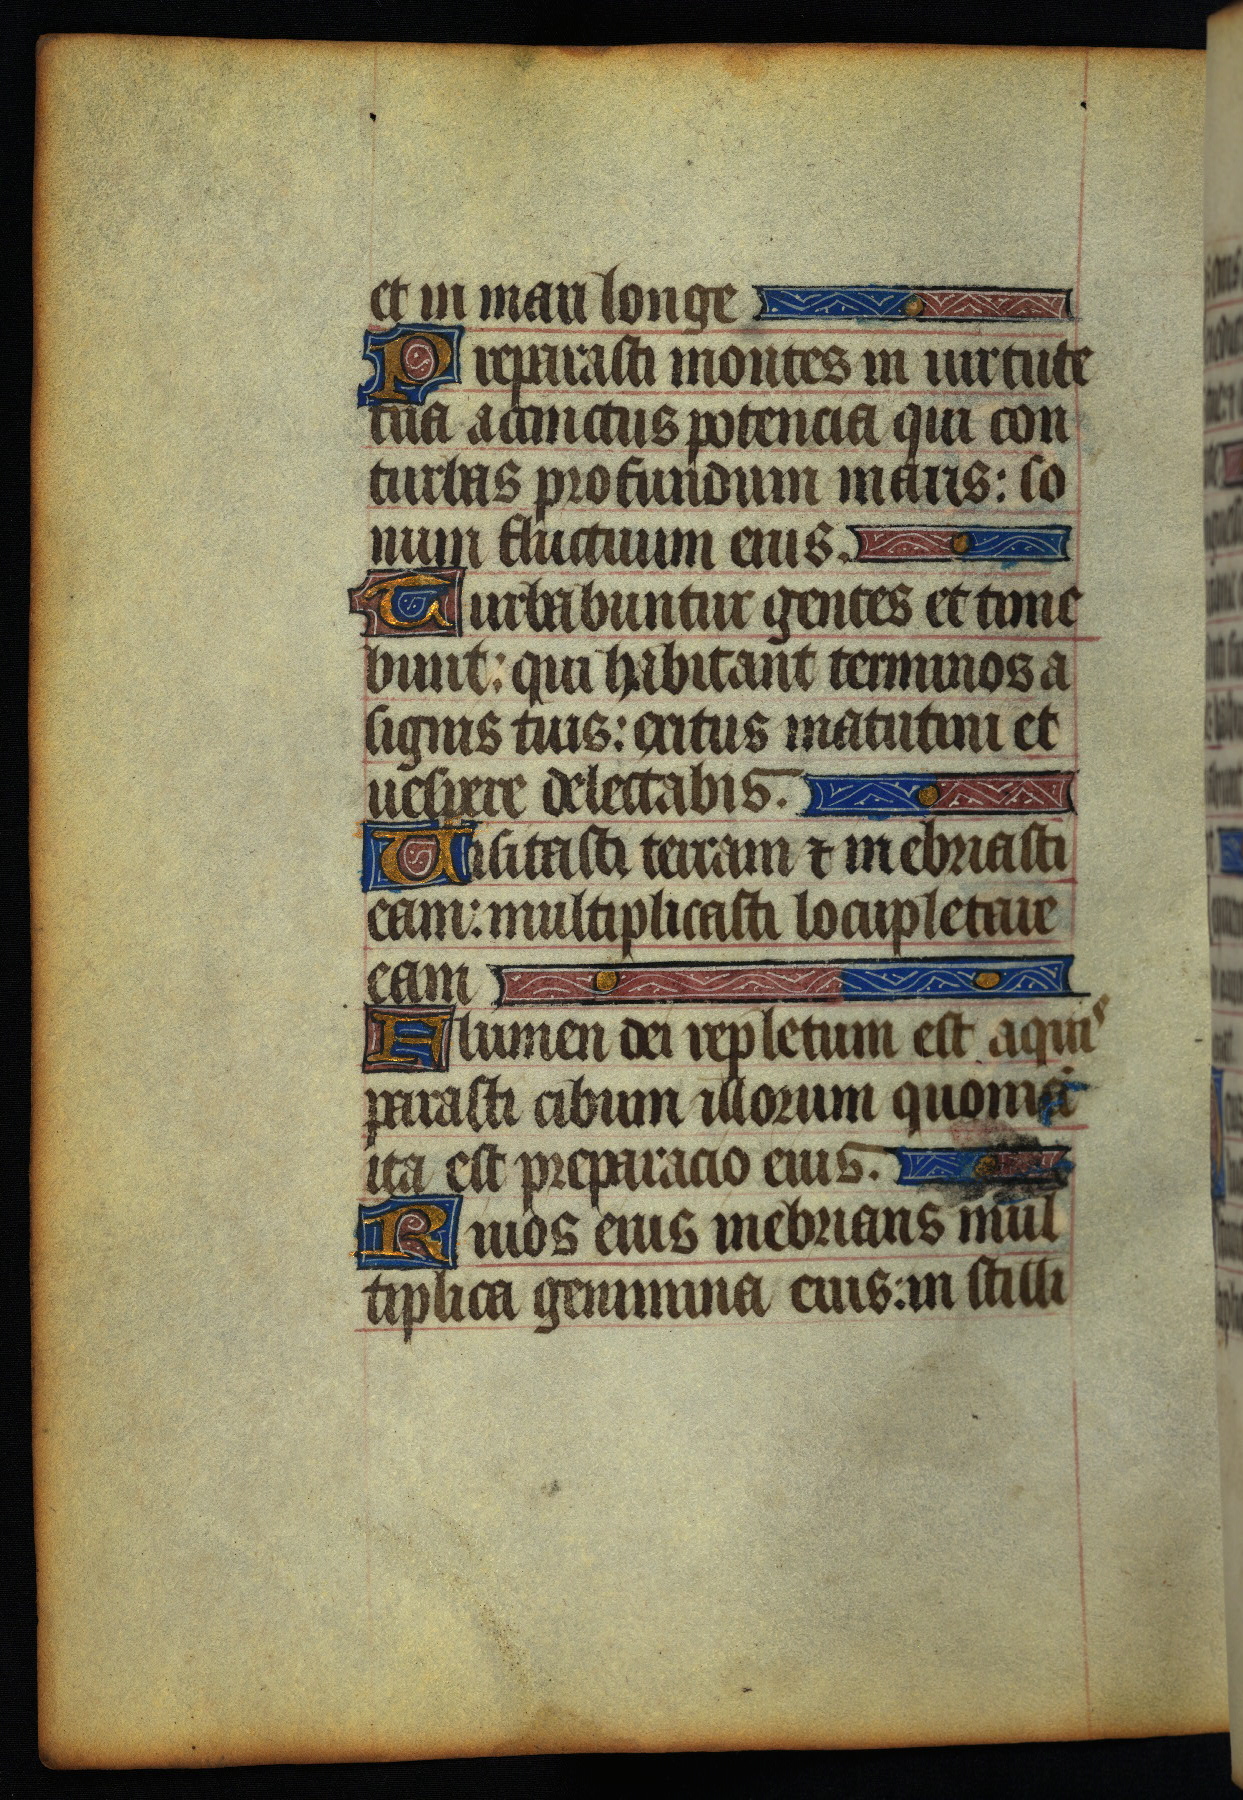 et in mari longe
Preparasti montes in uirtute
tua accinctus potencia qui con
turbas profundum maris: so
num fluctuum eius.
Turbabuntur gentes et time
bunt: qui habitant terminos a
signis tuis: exitus matutini et
uespere delectabis.
Uisitasti terram ⁊ in ebriasti
eam: multiplicasti locupletare
eam
Flumen dei repletum est aquis
parasti cibum illorum quoniā
ita est preparacio eius.
Riuos eius inebrians mul
tiplica genimina eius: in stilli